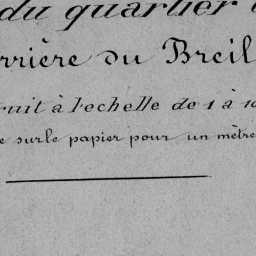 du quartier
rrière du Breil
ruit à l'echelle de 1 à 10
sur le papier pour un mètre